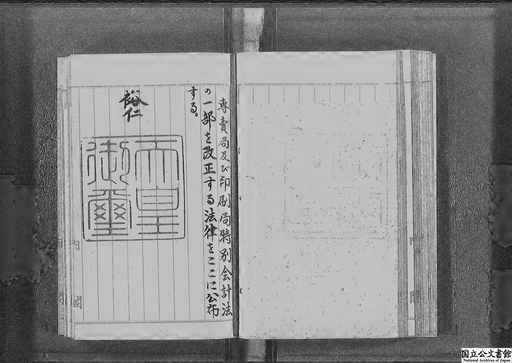 専賣局及び印刷局特別会計法
の一部を改正する法律をここに公布
する。
裕仁
天皇
御璽
国立公文書館
National Archives of Japan